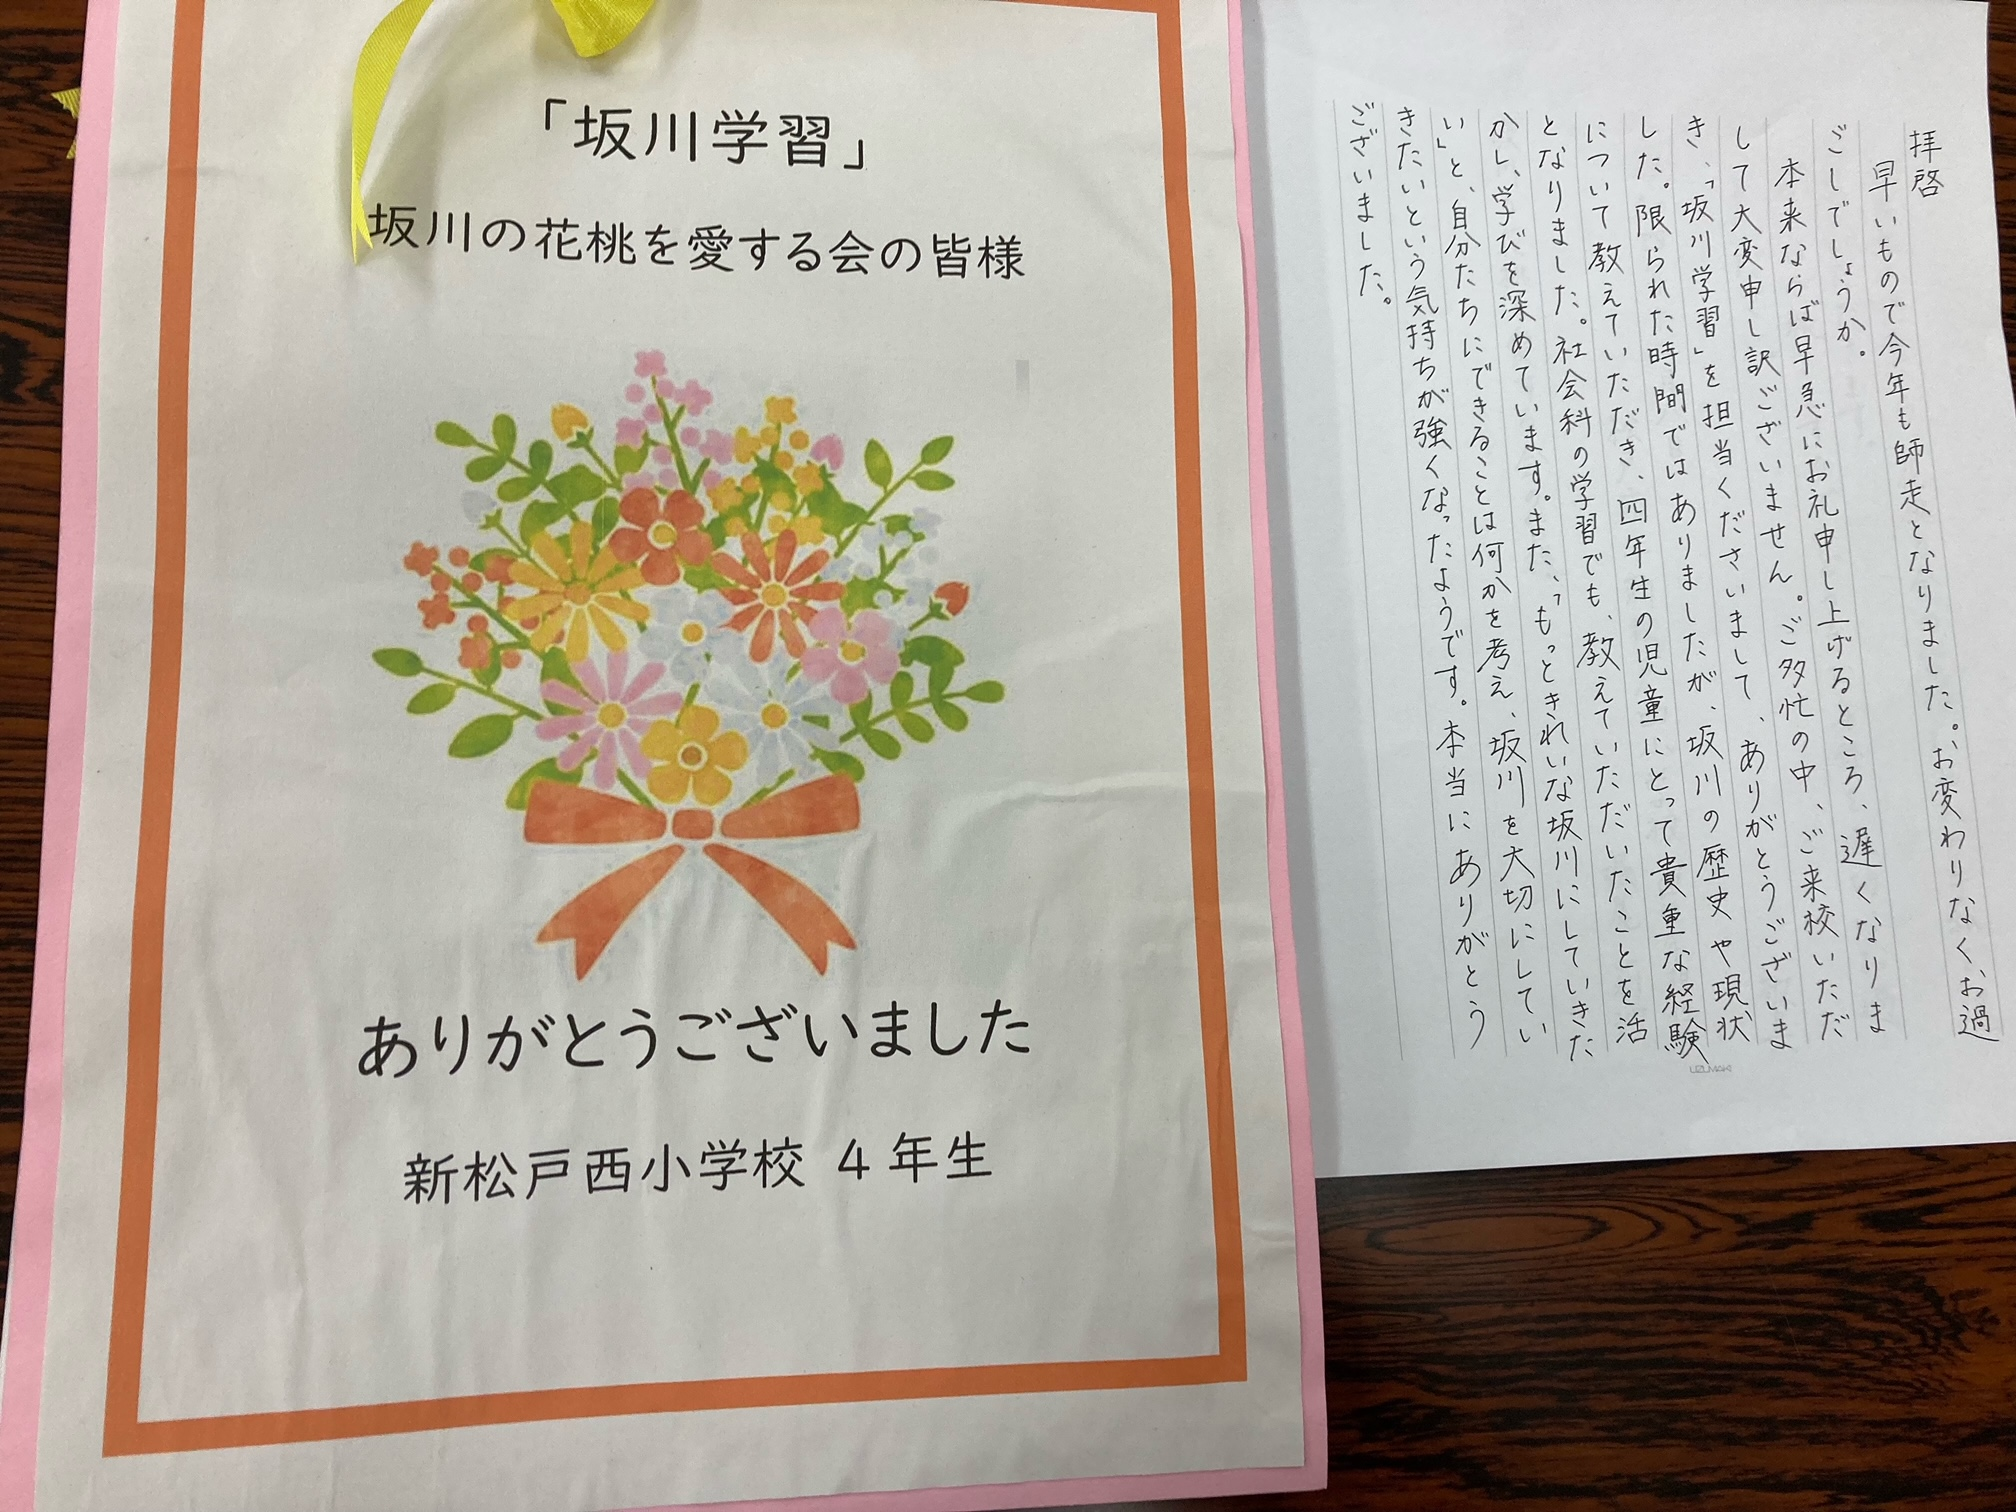 「坂川学習」
坂川の花桃を愛する会の皆様
ありがとうございました
新松戸西小学校 4年生
拝啓
早いもので今年も師走となりました。お変わりなくお過
ごしでしょうか。
本来ならば早急にお礼申し上げるところ、遅くなりま
して大変申し訳ございません。ご多忙の中、ご来校いただ
き、「坂川学習」を担当くださいまして、ありがとうございま
した。限られた時間ではありましたが、坂川の歴史や現状
について教えていただき、四年生の児童にとって貴重な経験
となりました。社会科の学習でも、教えていただいたことを活
かし、学びを深めています。また、「もっときれいな坂川にしていきた
い」と、自分たちにできることは何かを考え、坂川を大切にしてい
きたいという気持ちが強くなったようです。本当にありがとう
ございました。
UZUMAKI